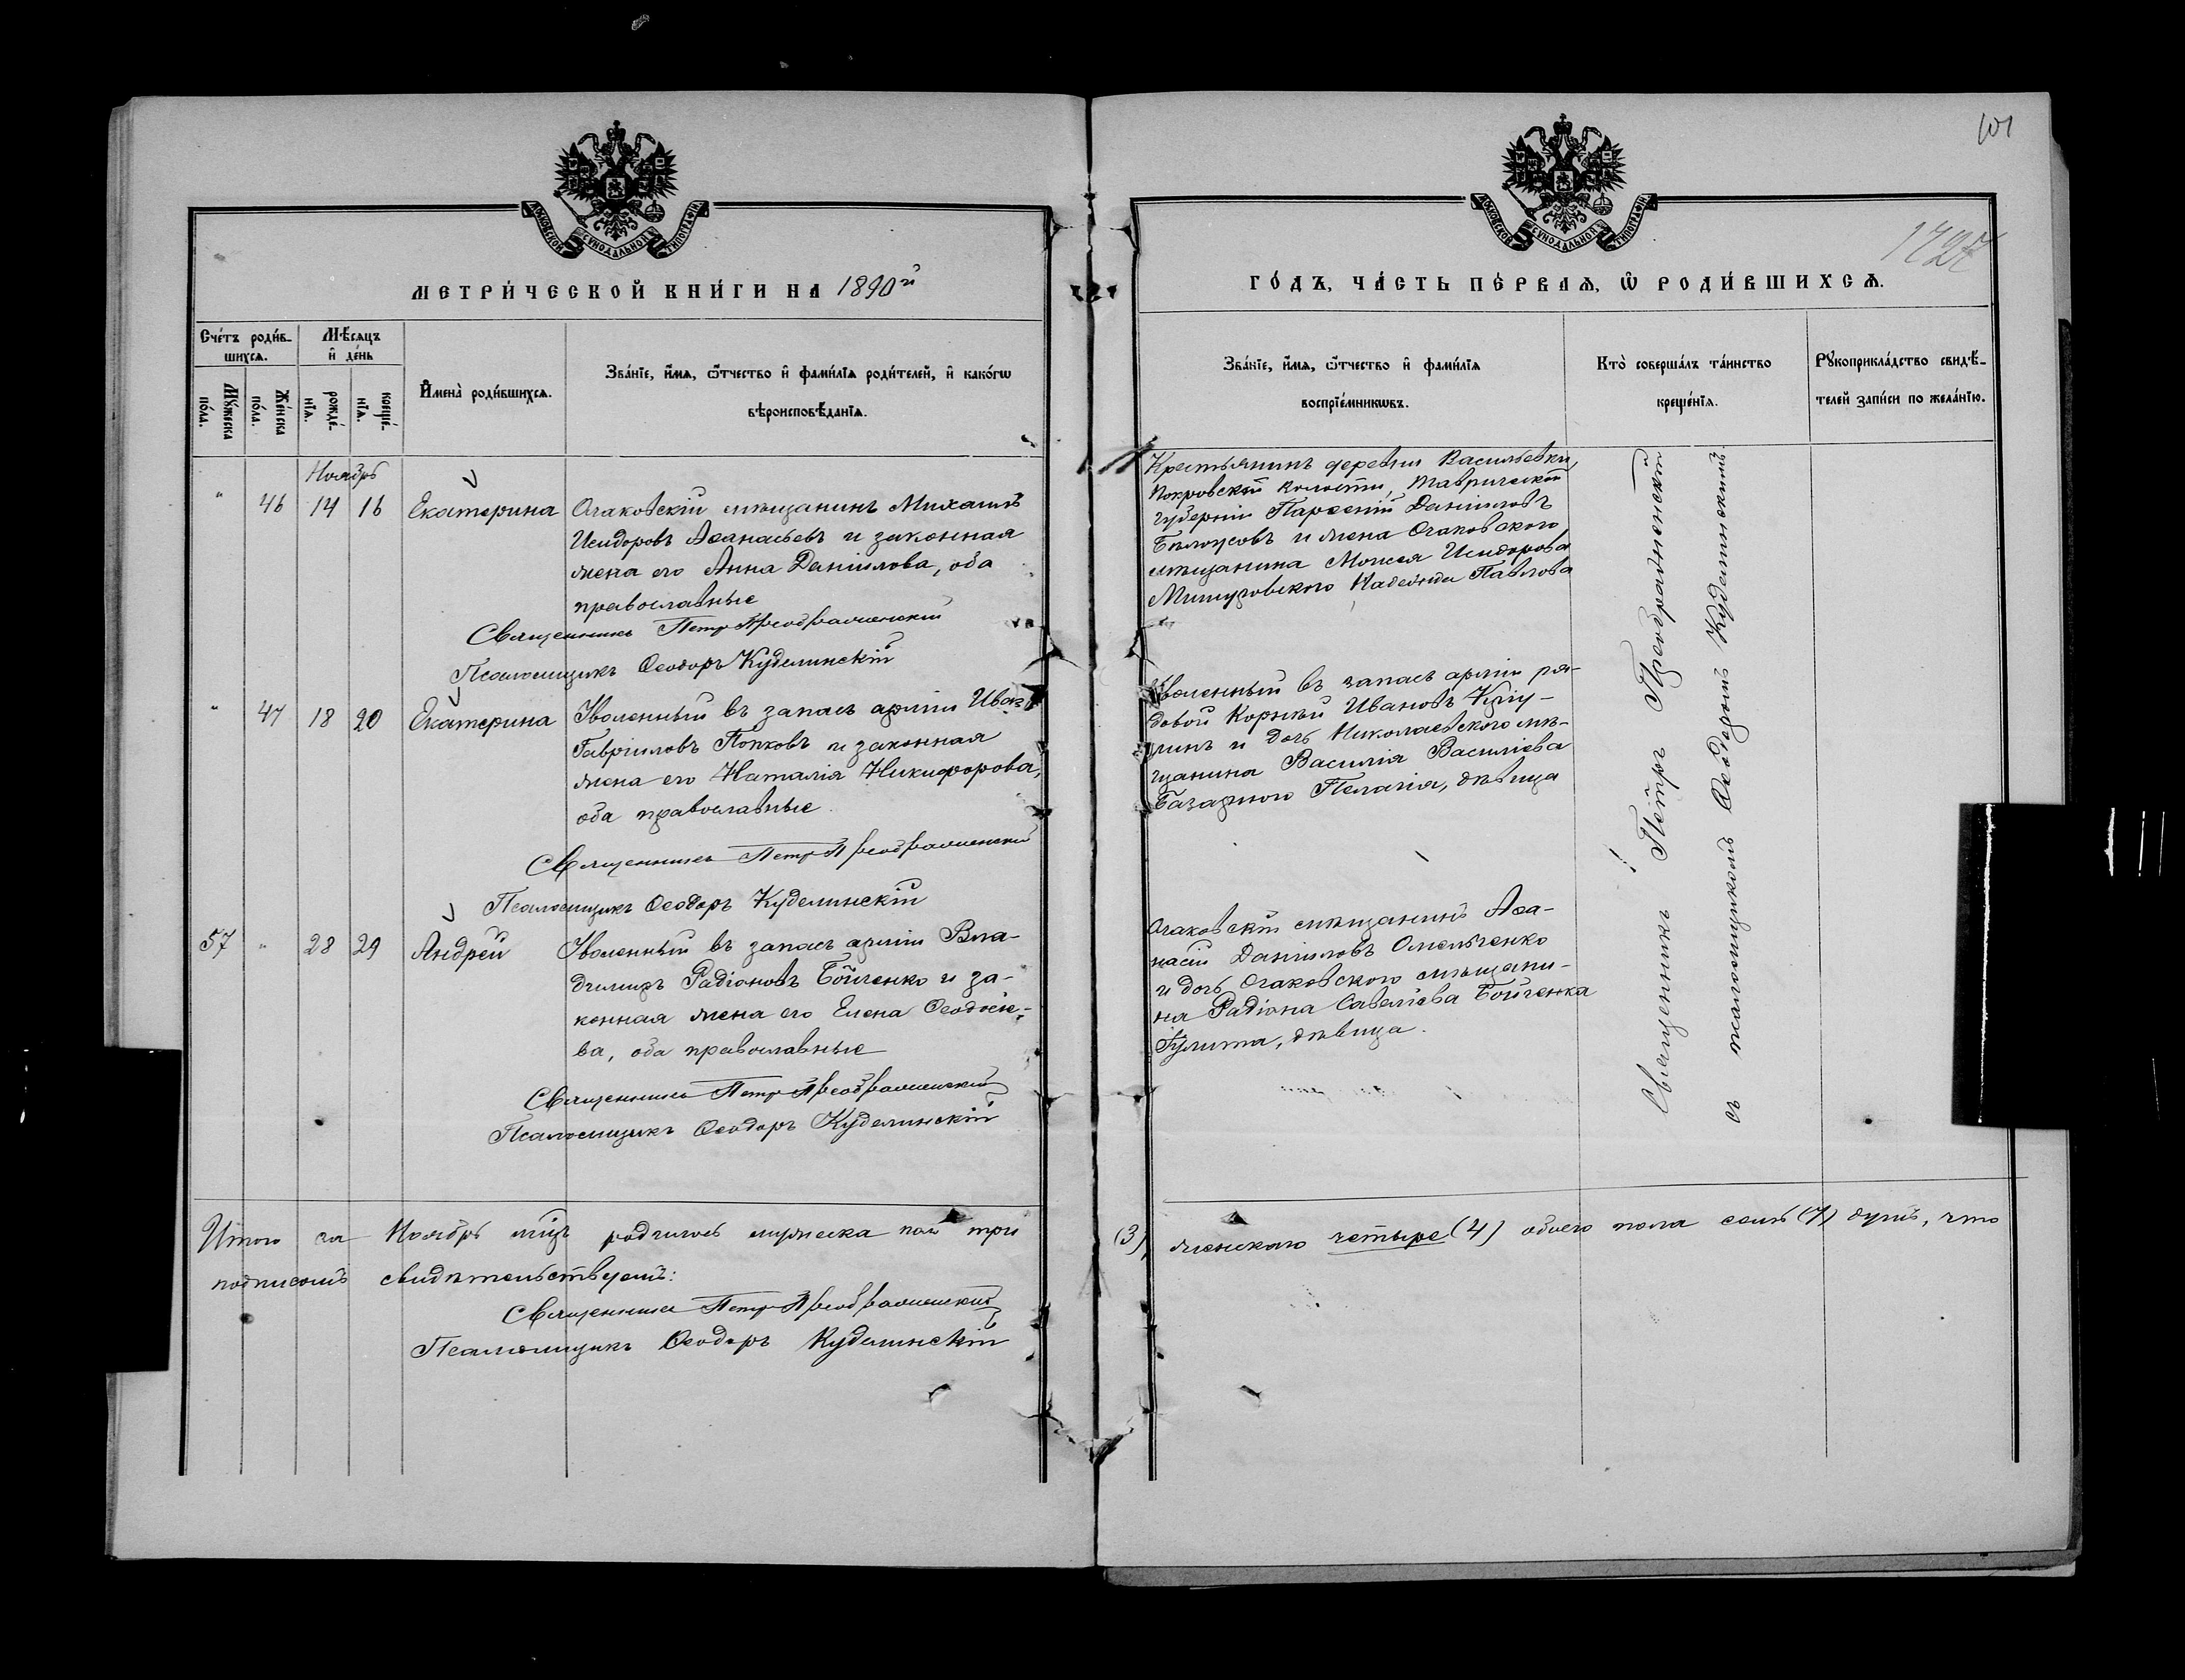 101
1727
МОСКОВСКОЙ СѴНОДАЛЬНОЙ ТИПОГРАФІИ
МОСКОВСКОЙ СѴНОДАЛЬНОЙ ТИПОГРАФІИ
МЕТРИ́ЧЕСКОЙ КНИ́ГИ НА 1890й
ГО́ДЪ, ЧА́СТЬ ПЕ́РВАѦ, Ѽ РОДИ́ВШИХСѦ.
Сче́тъ роди́в-
шихсѧ.
Мꙋ́жеска
по́ла.
Же́нска
по́ла.
Мѣ́сѧцъ
и҆ де́нь
рожде́-
нїѧ.
креще́-
нїѧ.
И҆мена̀ роди́вшихсѧ.
Зва́нїе, и҆́мѧ, ѻ҆́тчество и҆ фами́лїѧ роди́телей, и҆ како́гѡ
вѣроисповѣ́данїѧ.
Зва́нїе, и҆́мѧ, ѻ҆́тчество и҆ фами́лїѧ
воспрїе́мникѡвъ.
Кто̀ соверша́лъ та́инство
креще́нїѧ.
Рꙋкоприкла́дство свидѣ́-
телей за́писи по жела́нїю.
Ноябрь
" 46 14 16 Екатерина
Очаковскій мѣщанинъ Михаилъ
Исидоровъ Аѳанасьевъ и законная
жена его Анна Даніилова, оба
православные
Священникъ Петръ Преображенскій
Псаломщикъ Ѳеодоръ Куделинскій
Крестьянинъ деревни Васильевки,
Покровской волости, Таврической
губерніи Парѳеній Данииловъ
Бѣлоусовъ и жена Очаковского
мѣщанина Моисея Исидорова
Надежда Павлова
" 47 18 20 Екатерина
Уволенный въ запасъ арміи Иванъ
Гавріиловъ Попковъ и законная
жена его Наталія Никифорова,
оба православные
Священникъ Петръ Преображенскій
Псаломщикъ Ѳеодоръ Куделинскій
Уволенный въ запасъ арміи ря-
довой Корнѣй Ивановъ
и дочь Николаевского мѣ-
щанина Василія Василіева
Базарного Пелагія, дѣвица
57 " 28 29 Андрей
Уволенный въ запасъ арміи Вла-
димиръ Радіоновъ Бойченко и за-
конная жена его Елена Ѳеодосіе-
ва, оба православные
Священникъ Петръ Преображенскій
Псаломщикъ Ѳеодоръ Куделинскій
Очаковскій мѣщанинъ Аѳа-
насій Данииловъ Омельченко
и дочь Очаковского мѣщани-
на Радіона Савеліева Бойченка
Іулита, дѣвица.
Священникъ Петръ Преображенскій
съ псаломщикомъ Ѳеодоромъ Куделинскимъ
Итого за Ноябрь мцъ родилось мужеска пола три (3) женскаго четыре (4) обоего пола семь (7) душъ, что
подписомъ свидѣтельствуемъ:
Священникъ Петръ Преображенскій
Псаломщикъ Ѳеодоръ Куделинскій